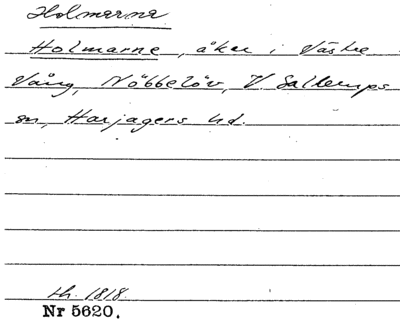 Holmarna
Holmarne, åker i Västre
Vång, Nöbbelöv, V. Sallerups
sn, Harjagers hd.
th. 1818.
Nr 5620.